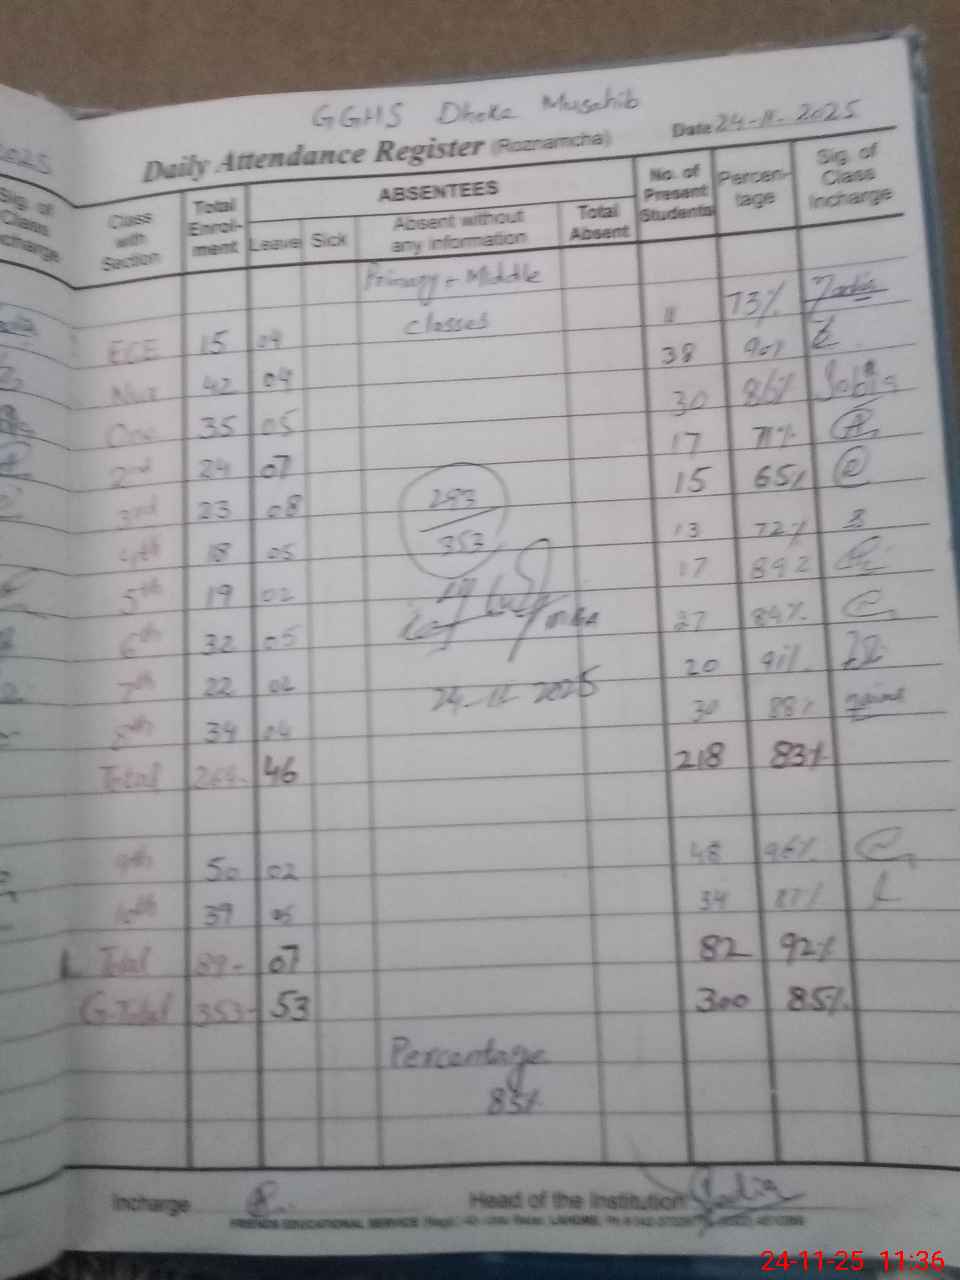 GGHS Dhoke Musahib
Daily Attendance Register (Roznamcha) Date 24-11-2025
Class with Section Total Enrol-ment ABSENTEES No. of Present Students Percen-tage Sig. of Class Incharge
Leave Sick Absent without any information Total Absent
Primary + Middle
classes
ECE 15 04 11 73%
Nur 42 04 38 90%
One 35 05 30 86%
2nd 24 07 17 71%
3rd 23 08 15 65%
4th 18 05 13 72%
5th 19 02 17 89%
6th 32 05 27 84%
7th 22 02 20 91%
8th 34 04 30 88%
Total 264 46 218 83%
293
353
24-11-2025
9th 50 02 48 96%
10th 39 05 34 87%
Total 89 07 82 92%
G.Total 353 53 300 85%
Percentage
85%
Incharge Head of the Institution
FRIENDS EDUCATIONAL SERVICE LAHORE
24-11-25 11:36